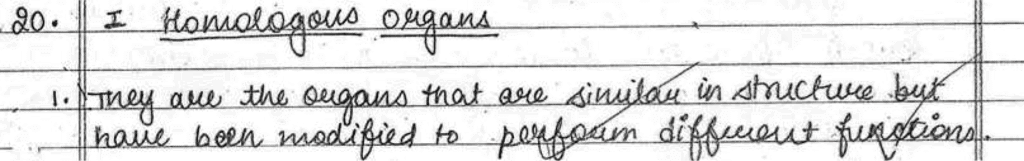 20. I Homologous organs
1. They are the organs that are similar in structure but
have been modified to perform different functions.